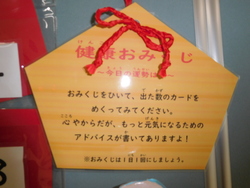 健康おみくじ
～今日の運勢は～
おみくじをひいて、出た数のカードを
めくってみてください。
心やからだが、もっと元気になるための
アドバイスが書いてありますよ！
※おみくじは1日1回にしましょう。